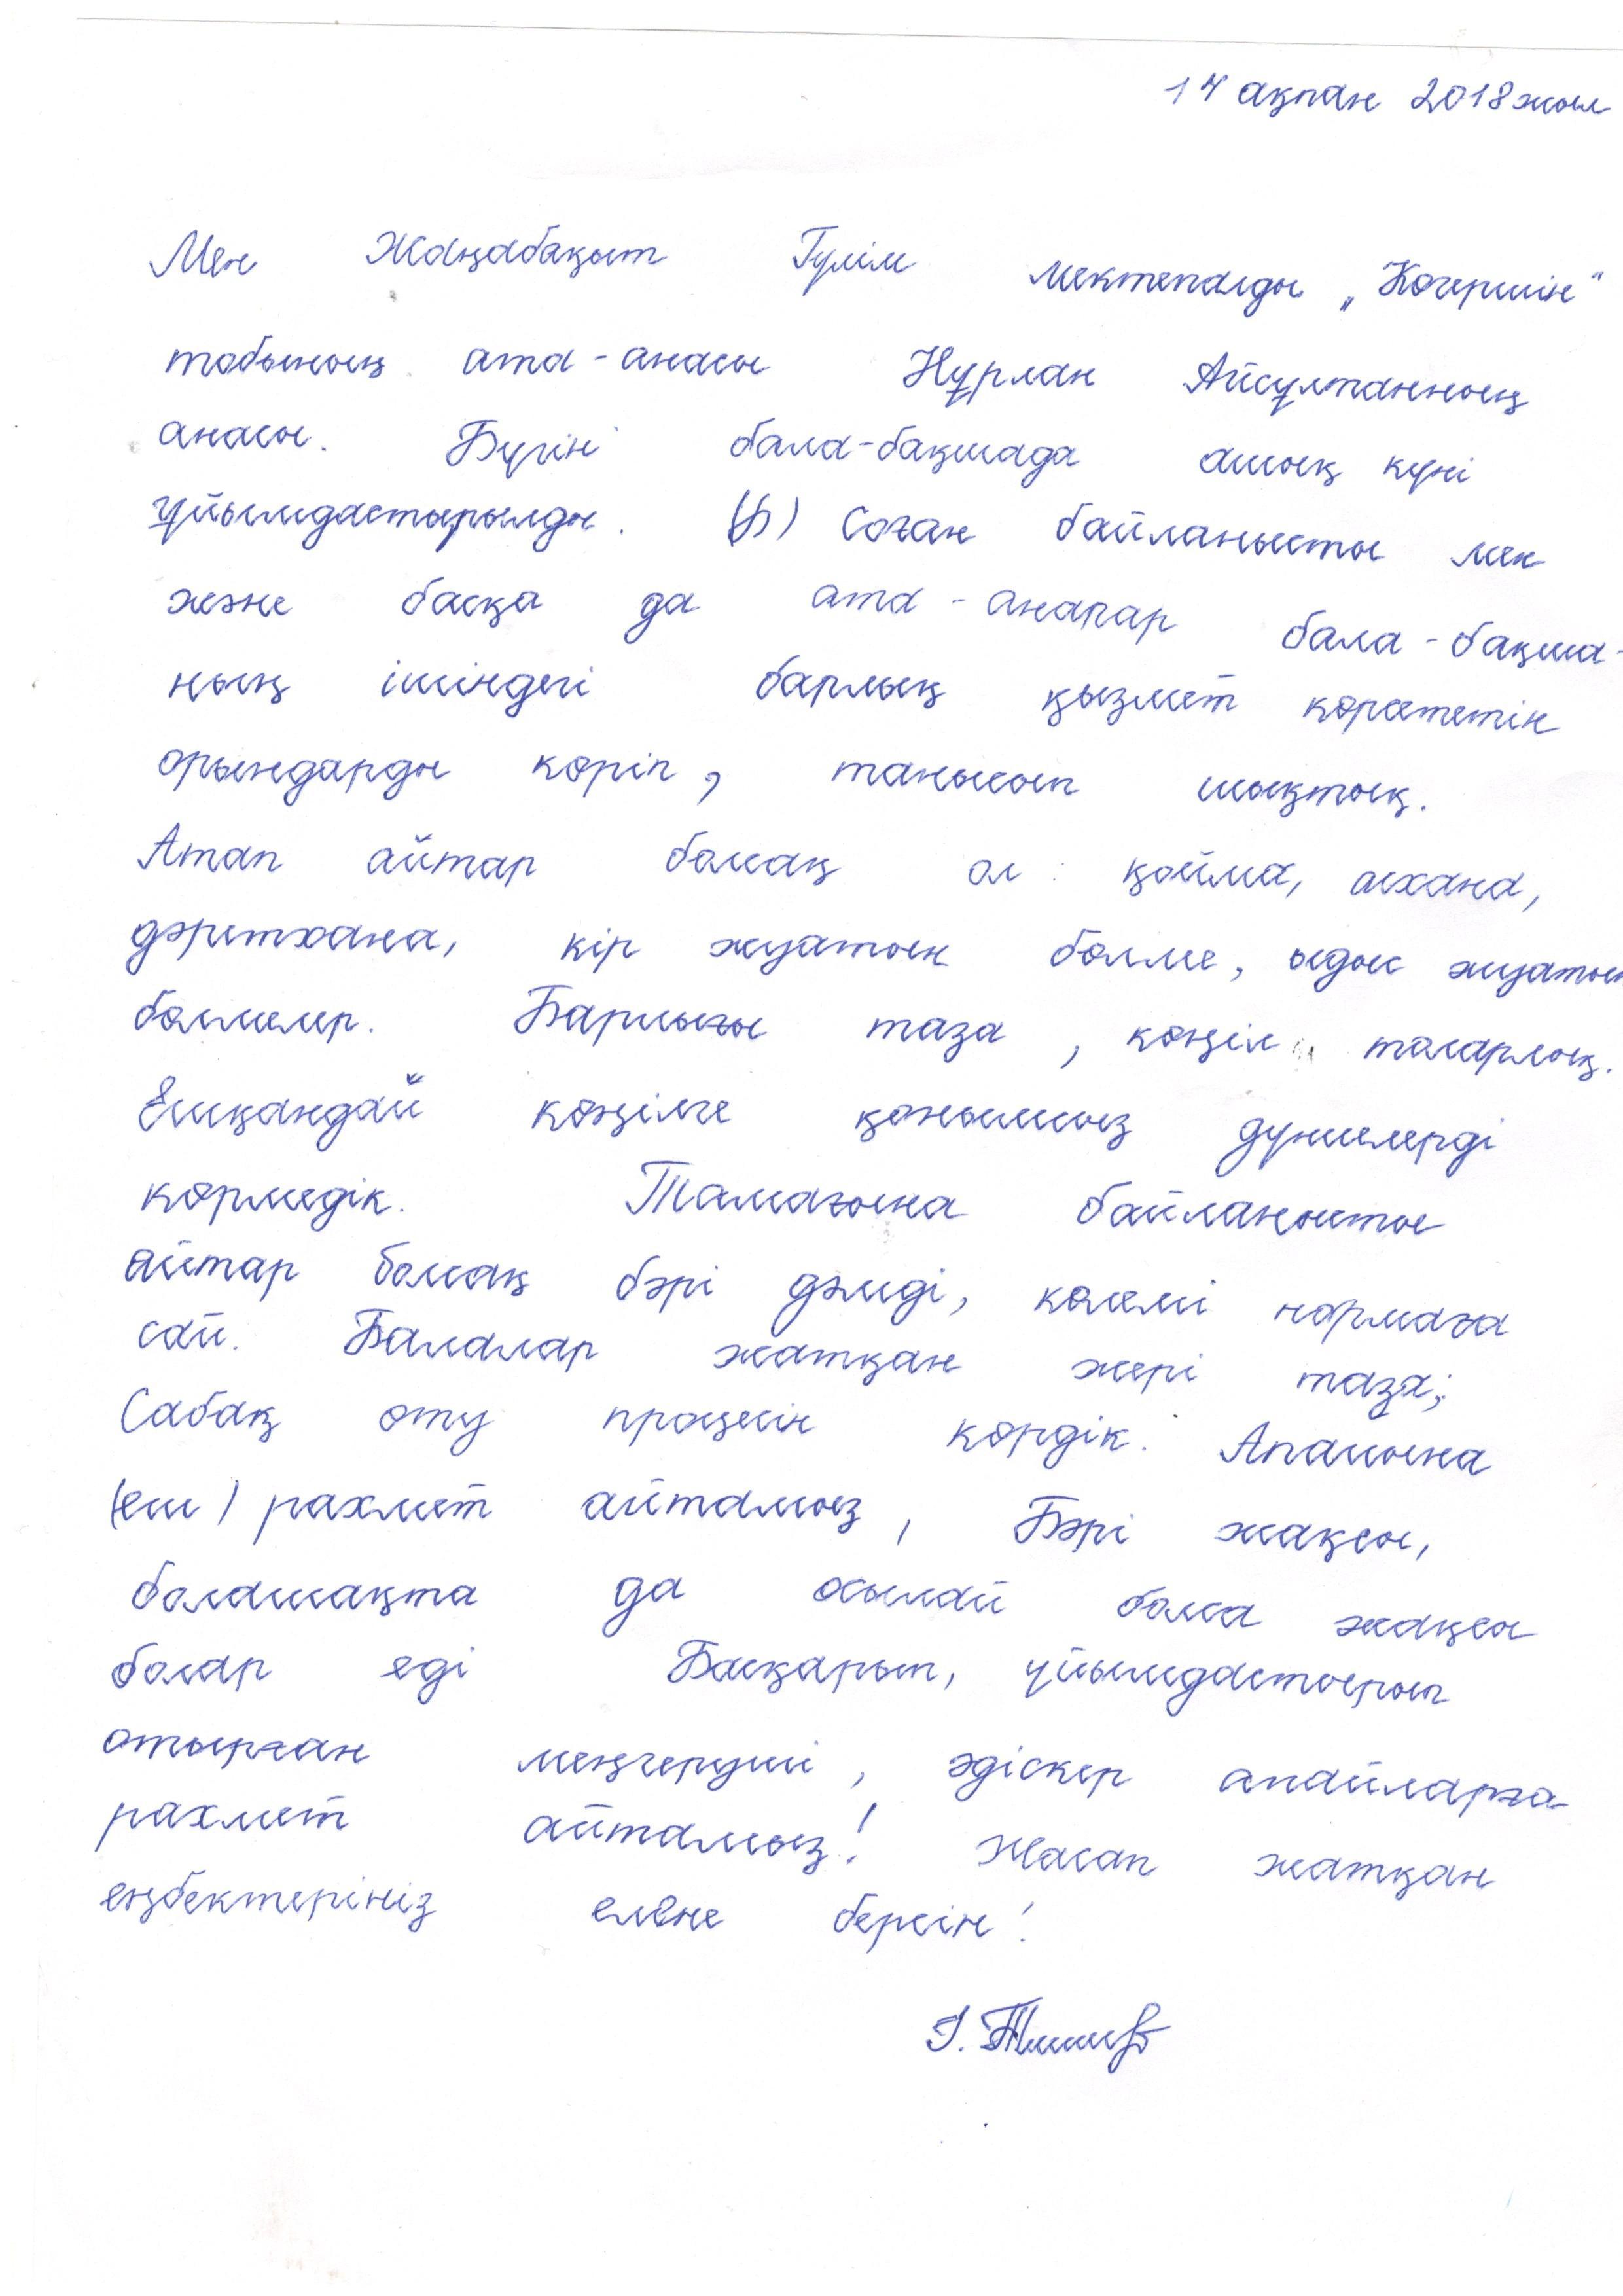 14 ақпан 2018 жыл
Мен Жаңабақыт Гүлім мектепалды „Көгершін“
тобының ата-анасы Нұрлан Айсұлтанның
анасы. Бүгін бала-бақшада ашық күні
ұйымдастырылды. Соған байланысты мен
және басқа да ата-аналар бала-бақша-
ның ішіндегі барлық қызмет көрсететін
орындарды көріп, танысып шықтық.
Атап айтар болсақ ол: қойма, асхана,
дәретхана, кір жуатын бөлме, ыдыс жуатын
бөлмелер. Барлығы таза, көңіл толарлық.
Ешқандай көңілге қонымсыз дүниелерді
көрмедік. Тамағына байланысты
айтар болсақ бәрі дәмді, көлемі нормаға
сай. Балалар жатқан жері таза;
Сабақ өту процесін көрдік. Апайына
(еш) рахмет айтамыз, Бәрі жақсы,
болашақта да осылай болса жақсы
болар еді Басқарып, ұйымдастырып
отырған меңгеруші, әдіскер апайларға
рахмет айтамыз! Жасап жатқан
еңбектеріңіз елене берсін!